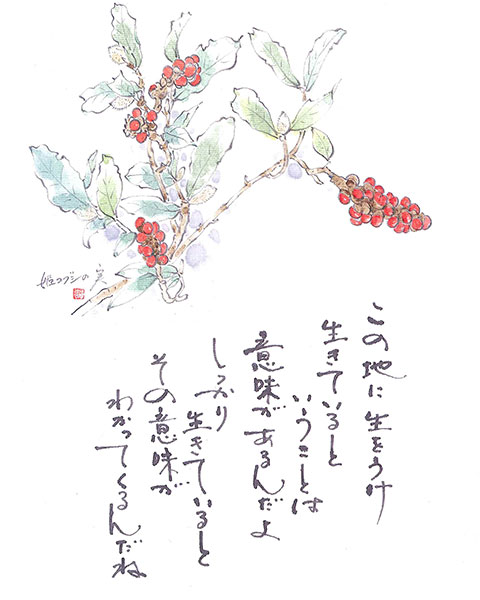 姫コブシの実
この地に生をうけ
生きていると
いうことは
意味があるんだよ
しっかり
生きていると
その意味が
わかってくるんだね